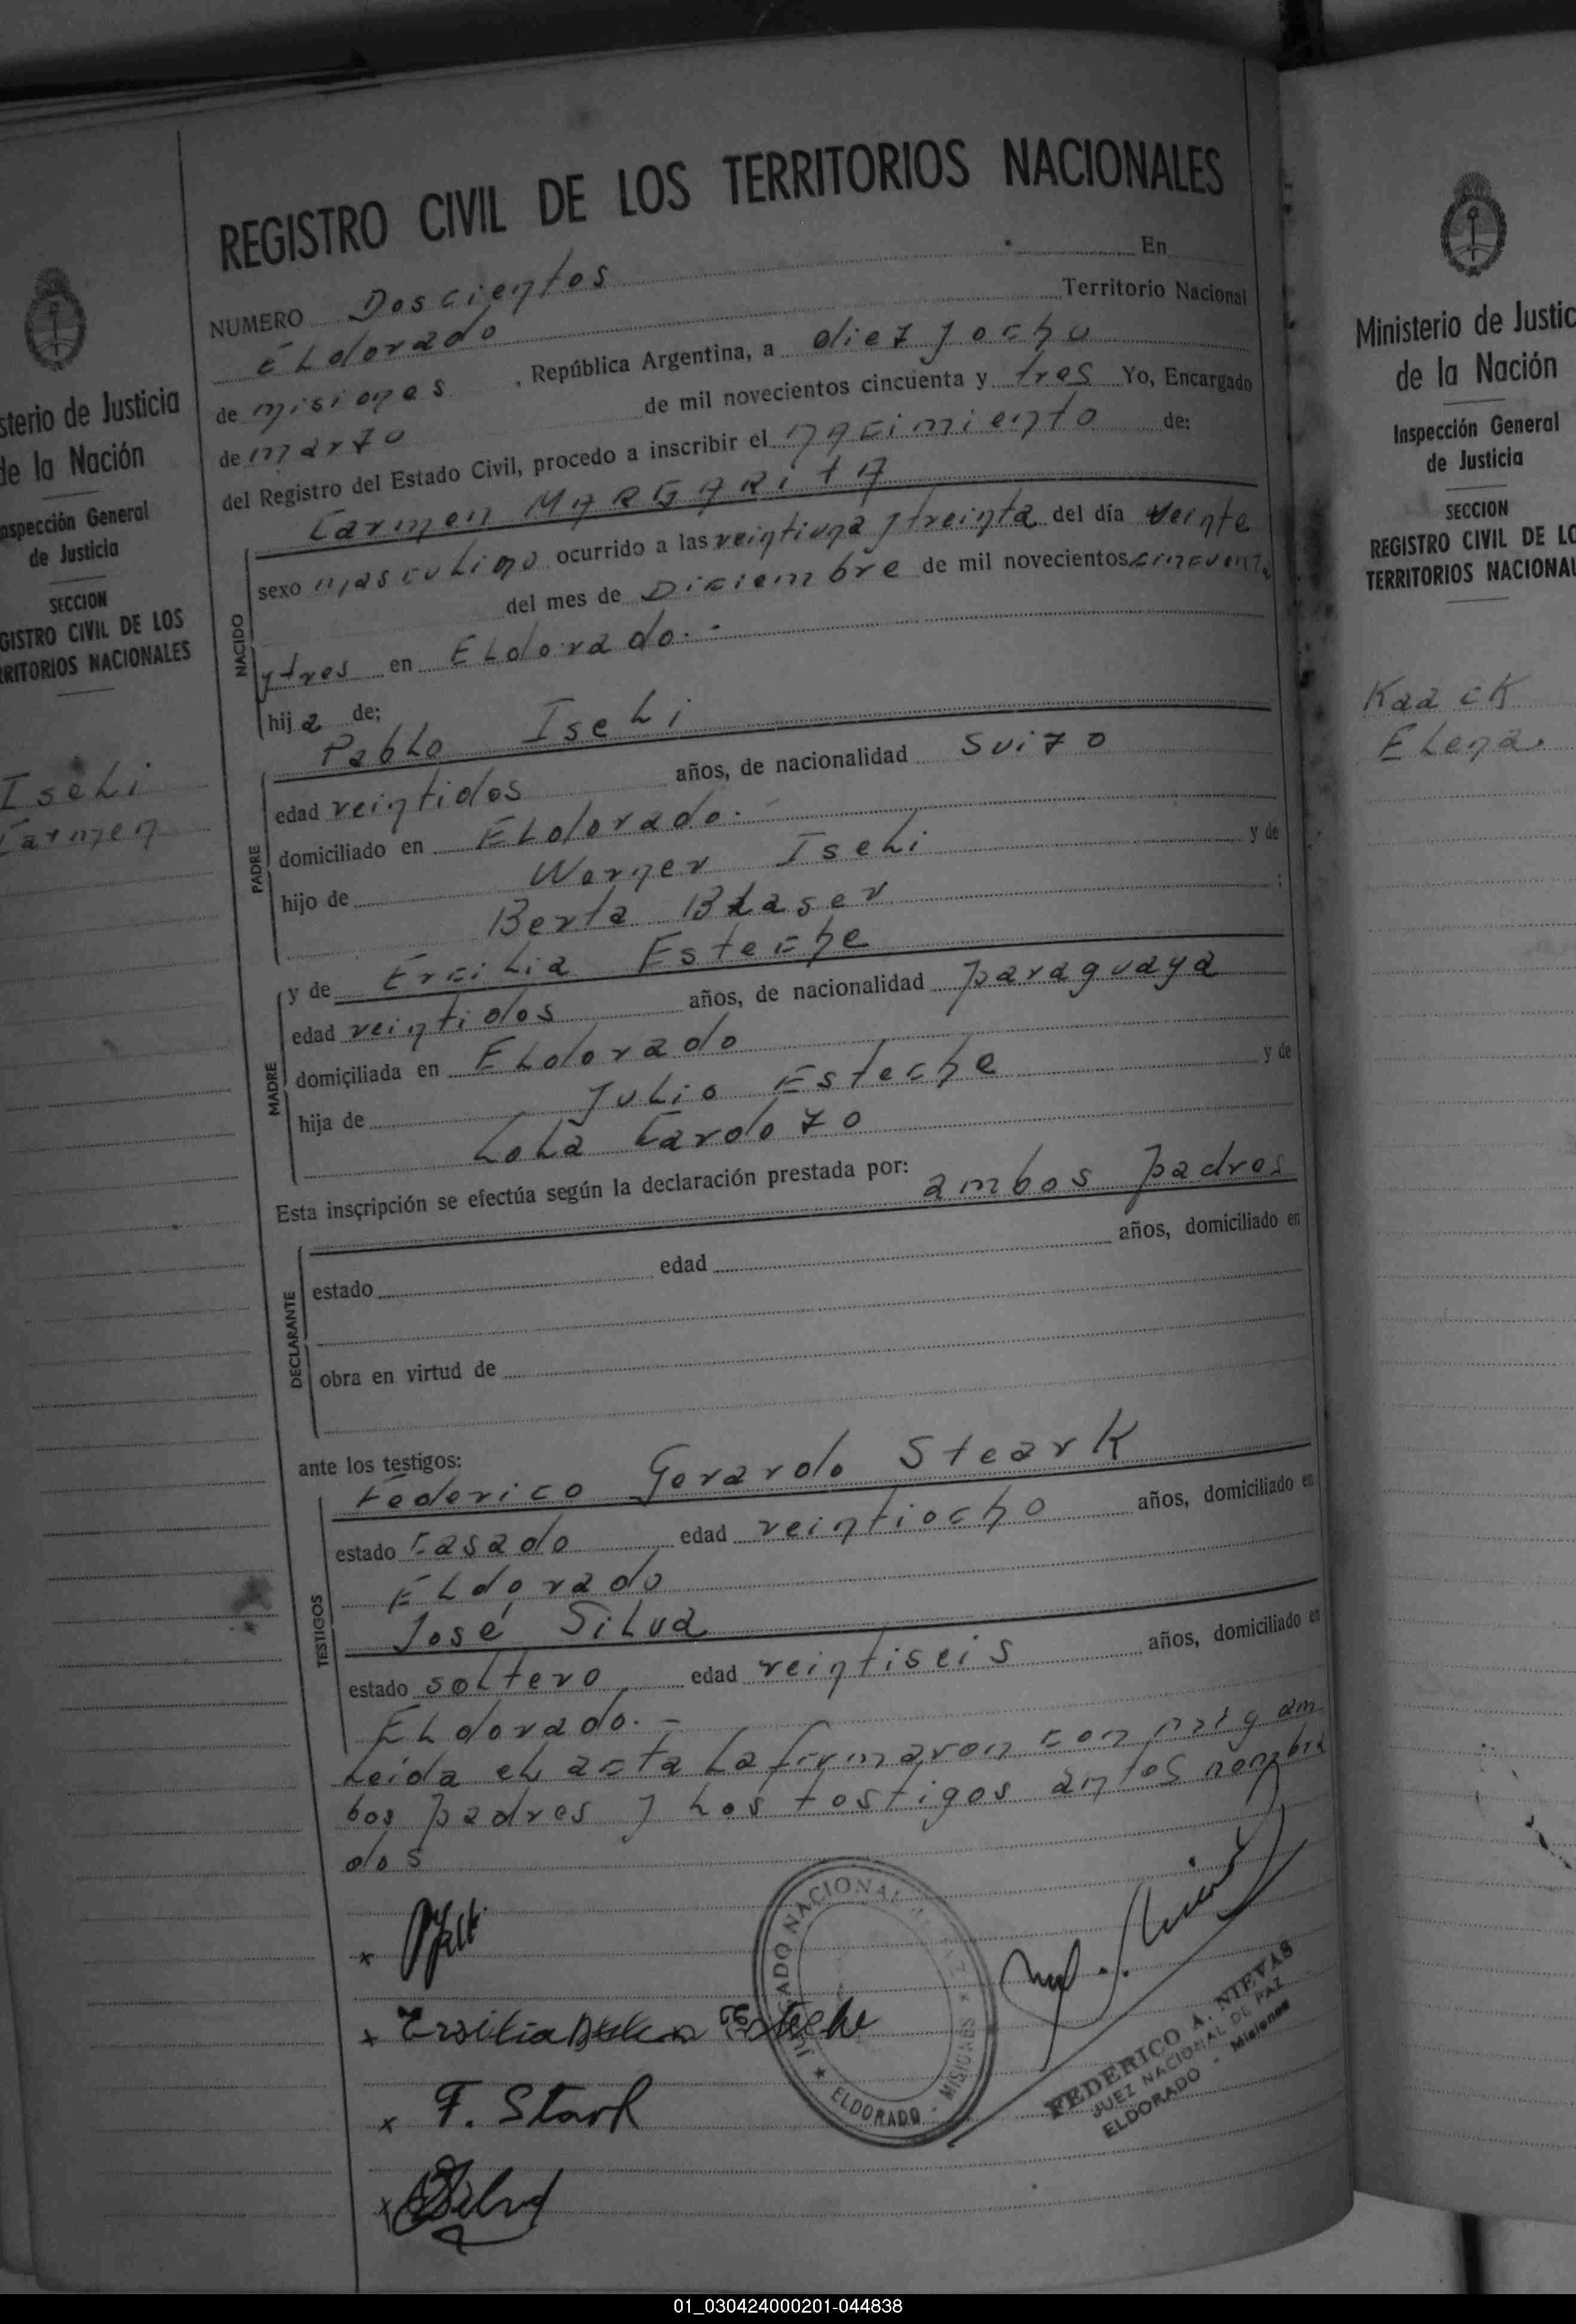 REGISTRO CIVIL DE LOS TERRITORIOS NACIONALES
NUMERO Doscientos En
ELdorado Territorio Nacional
de misiones , República Argentina, a diez y ocho
de marzo de mil novecientos cincuenta y tres Yo, Encargado
del Registro del Estado Civil, procedo a inscribir el nacimiento de:
Carmen MARGARITA
NACIDO
sexo masculino ocurrido a las veintiuna y treinta del día veinte
del mes de Diciembre de mil novecientos cincuenta
y tres en ELdorado.-
hija de;
PADRE
Pablo Iseli
edad veintidos años, de nacionalidad Suizo
domiciliado en ELdorado.
hijo de Werner Iseli y de
Berta Blaser ;
MADRE
y de Ercilia Esteche
edad veintidos años, de nacionalidad paraguaya
domiciliada en ELdorado
hija de Julio Esteche y de
Lola Cardozo
Esta inscripción se efectúa según la declaración prestada por:
ambos padres
DECLARANTE
estado edad años, domiciliado en
obra en virtud de
ante los testigos:
TESTIGOS
Federico Gerardo Steark
estado Casado edad veintiocho años, domiciliado en
ELdorado
José Silva
estado soltero edad veintiseis años, domiciliado en
ELdorado.-
Leida el acta la firmaron con migo am
bos padres y los testigos antes nombra
dos
x
x Ersilia Esteche
x F. Stark
x Silva
JUZGADO NACIONAL DE PAZ
ELDORADO - MISIONES
FEDERICO A. NIEVAS
JUEZ NACIONAL DE PAZ
ELDORADO - Misiones
sterio de Justicia
de la Nación
nspección General
de Justicia
SECCION
GISTRO CIVIL DE LOS
RRITORIOS NACIONALES
Iseli
Carmen
Ministerio de Justic
de la Nación
Inspección General
de Justicia
SECCION
REGISTRO CIVIL DE LO
TERRITORIOS NACIONAL
Kaack
Elena.
01_030424000201-044838